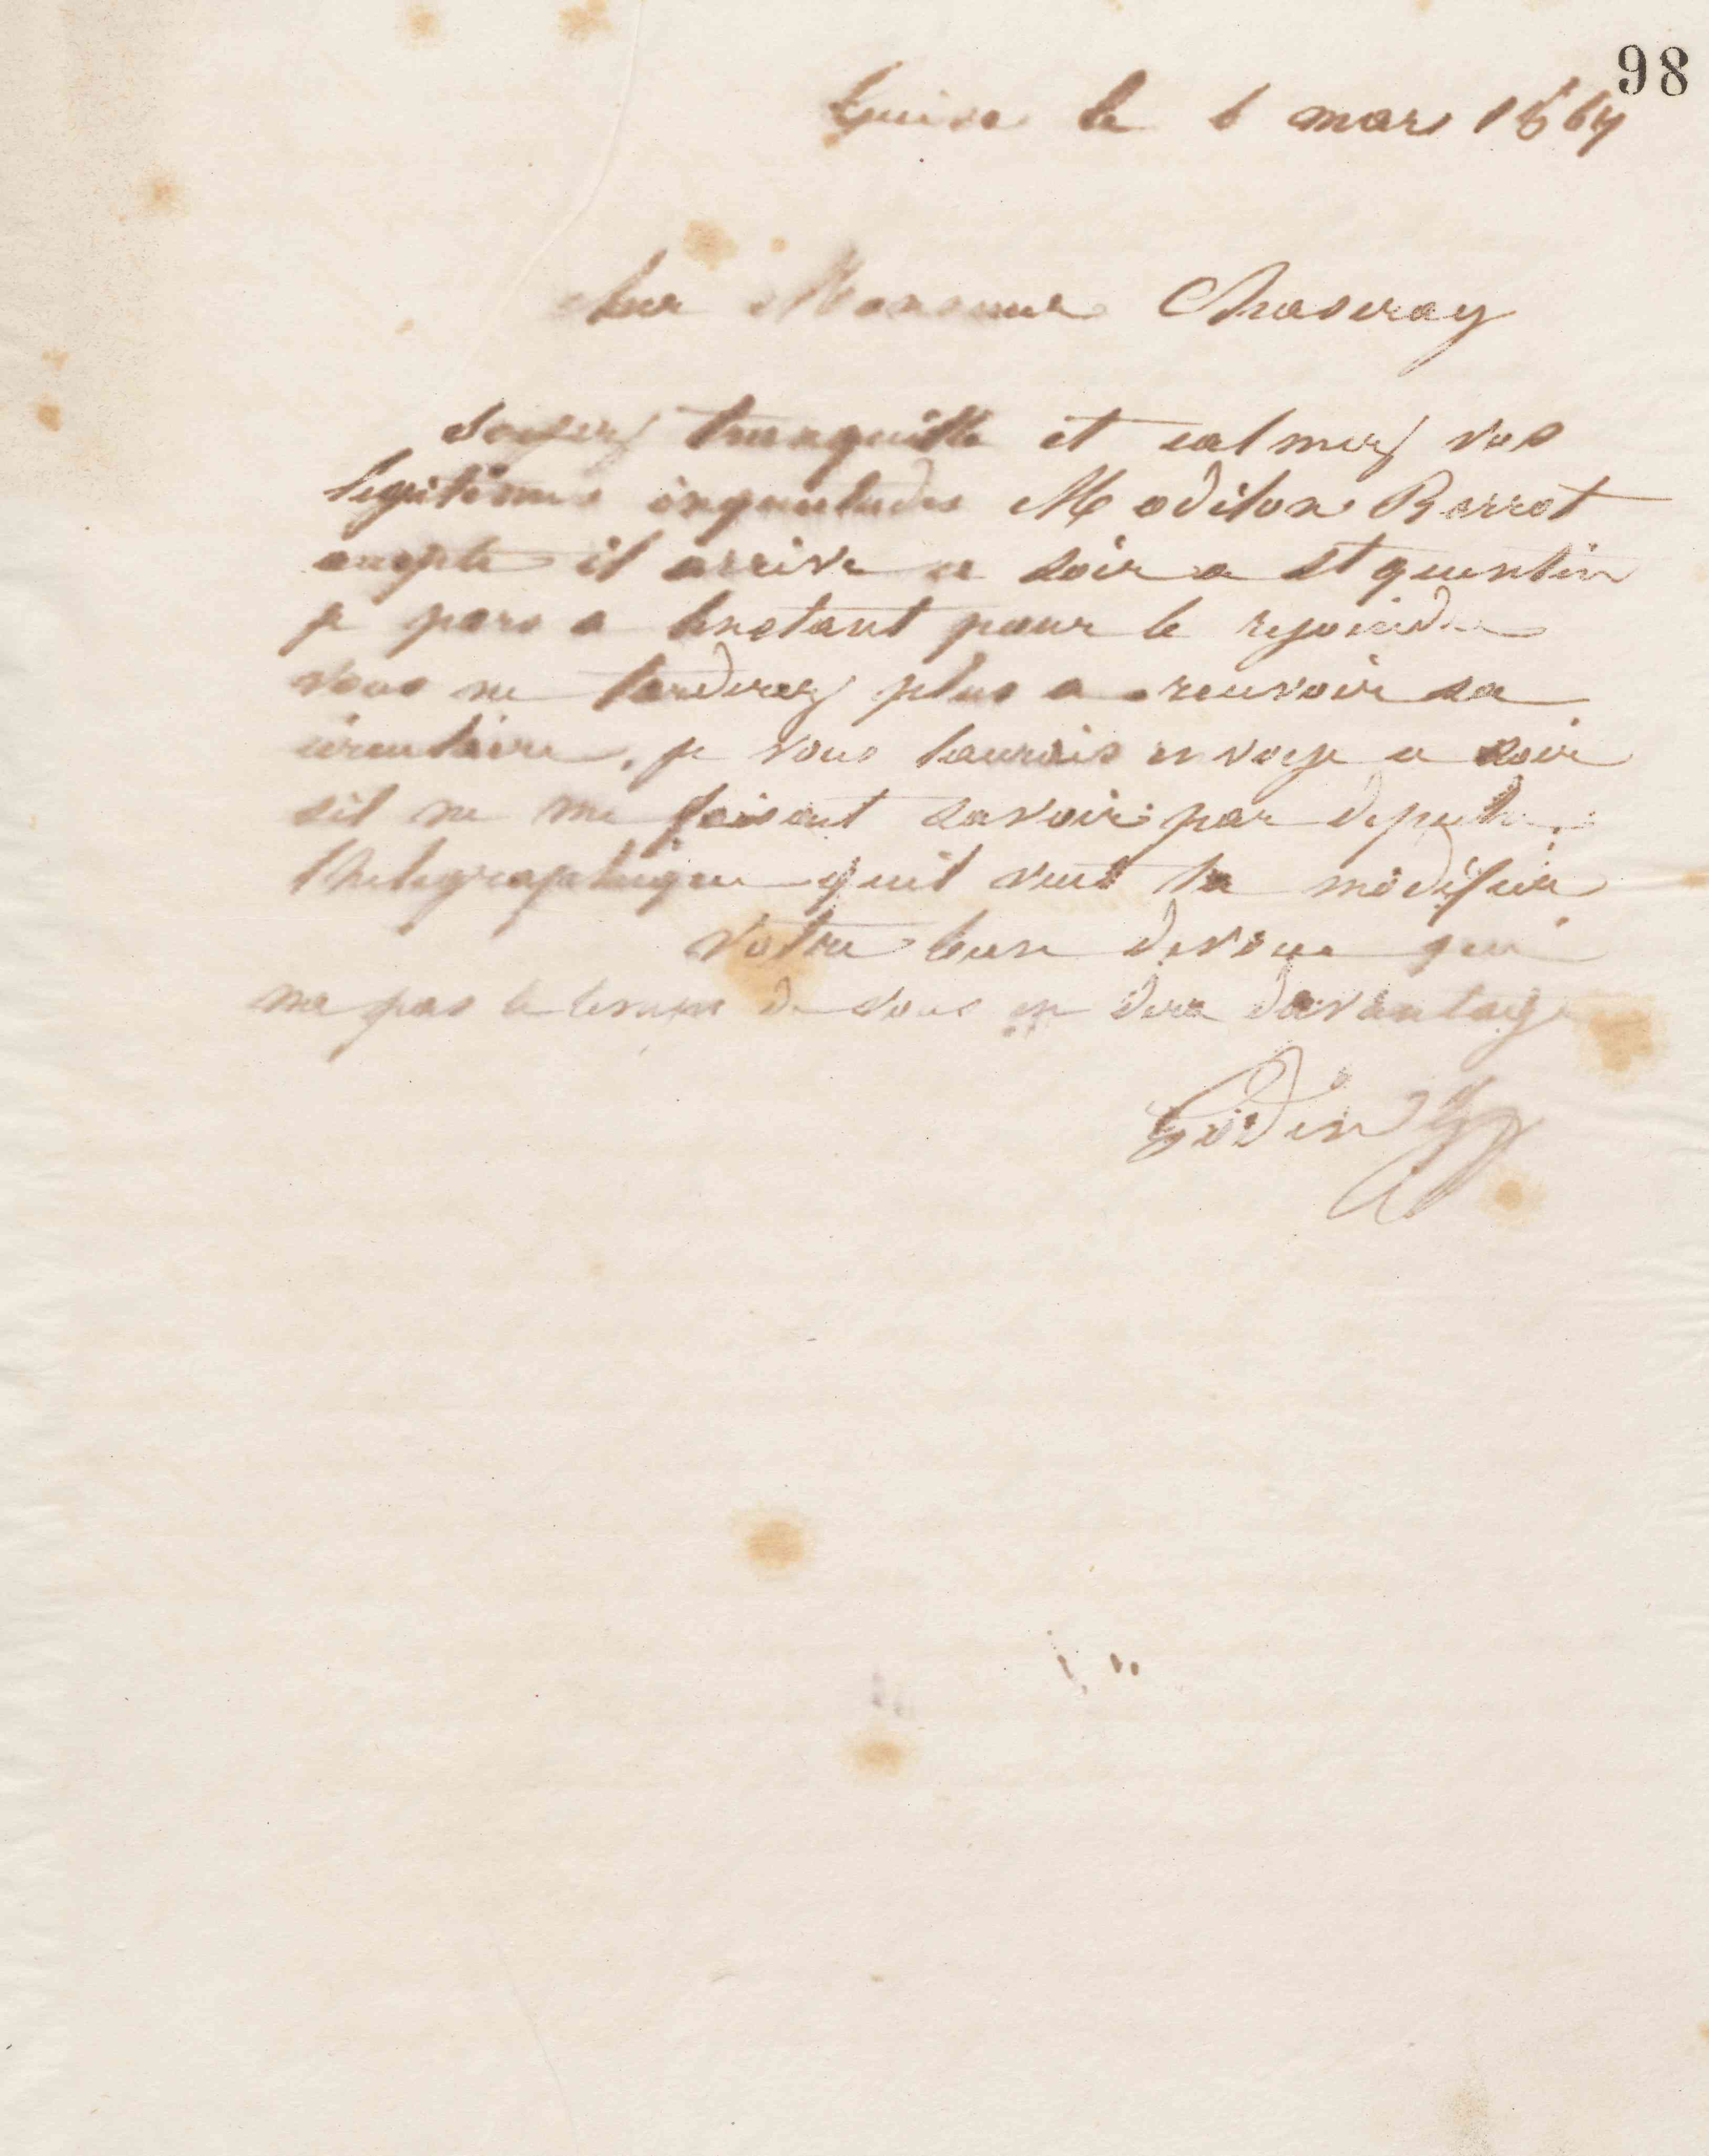 98
Guise le 6 mars 1864
cher Monsieur Chaseray
soyez tranquille et calmez vos
legitimes inquietudes M odilon Barrot
accepte il arrive ce soir a St quentin
je pars a linstant pour le rejoindre
vous ne tarderez plus a recevoir sa
circulaire, je vous laurais envoye ce soir
sil ne me faisait savoir par depeche
thelegraphique quil veut la modifier
votre bien devoue qui
na pas le temps de vous en dire davantage
Godin